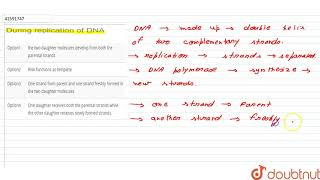 41591747
During replication of DNA
Option1 the two daughter molecules develop from both the parental strands
Option2 RNA functions as template
Option3 One strand from parent and one strand freshly formed in the two daughter molecules
Option4 One daughter receives both the parental strands while the other daughter receives newly formed strands.
DNA → made up → double helix
of two complementary strands.
→ replication → strands → separated
→ DNA polymerase → synthesize →
new strands.
→ one strand → Parent
→ another strand → freshly
doubtnut